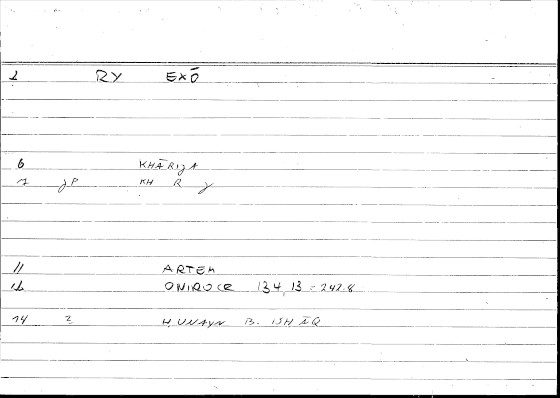 1 RY EXŌ
6 KHĀRIJA
7 JP KH R J
11 ARTEM
12 ONIROCR 134,13 = 242.8
14 2 ḤUNAYN B. ISḤĀQ